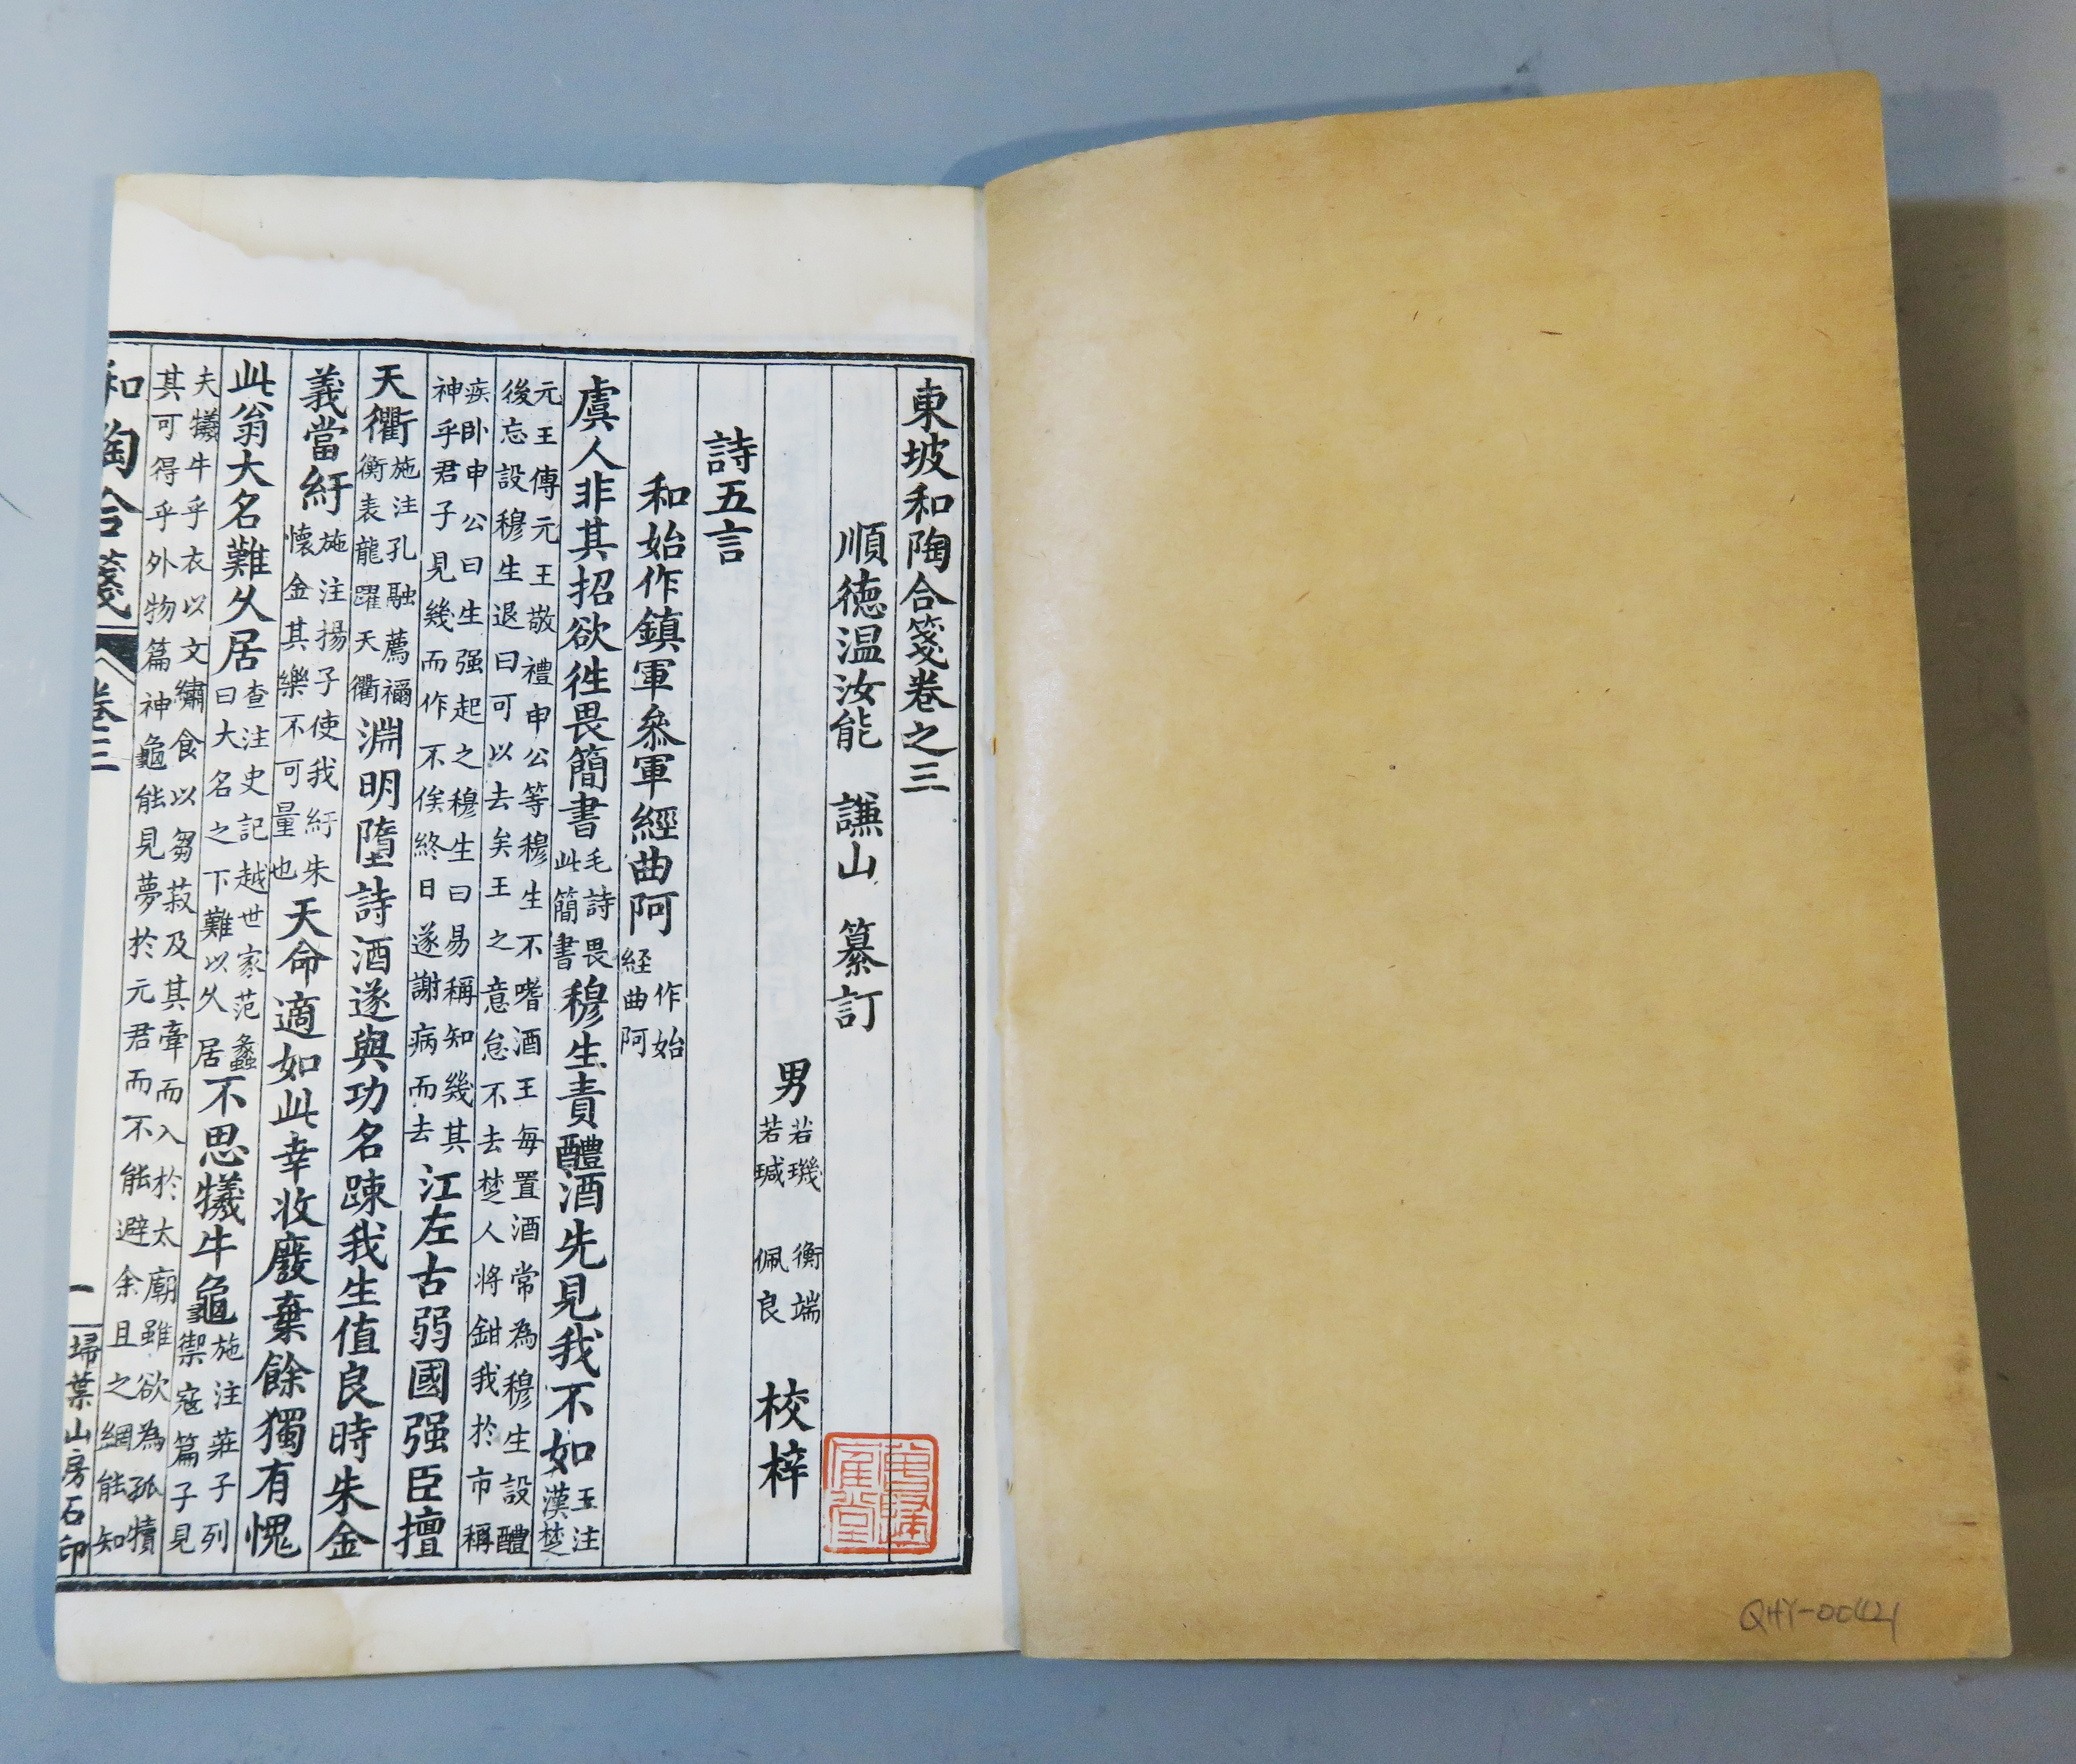 東坡和陶合箋卷之三
順徳温汝能 謙山 纂訂
男 若璣 若瑊 衡端 佩良 校梓
詩五言
和始作鎮軍叅軍經曲阿 作始 経曲阿
虞人非其招欲徃畏簡書 毛詩畏 此簡書 穆生責醴酒先見我不如 王注 漢楚
元王傳元王敬禮申公等穆生不嗜酒王每置酒常為穆生設醴
後忘設穆生退曰可以去矣王之意怠不去楚人将鉗我於市稱
疾卧申公曰生强起之穆生曰易稱知幾其 神乎君子見幾而作不俟終日遂謝病而去 江左古弱國强臣擅
天衢 施注孔融薦禰 衡表龍躍天衢 淵明墮詩酒遂與功名踈我生值良時朱金
義當紆 施注揚子使我紆朱 懐金其樂不可量也 天命適如此幸收廢棄餘獨有愧
此翁大名難久居 查注史記越世家范蠡 曰大名之下難以久居 不思犧牛龜 施注莊子列 禦寇篇子見
夫犧牛乎衣以文繡食以芻菽及其牽而入於太廟雖欲為孤犢
其可得乎外物篇神龜能見夢於元君而不能避余且之網能知
和陶合箋 卷三 一 掃葉山房石印
QHY-00421